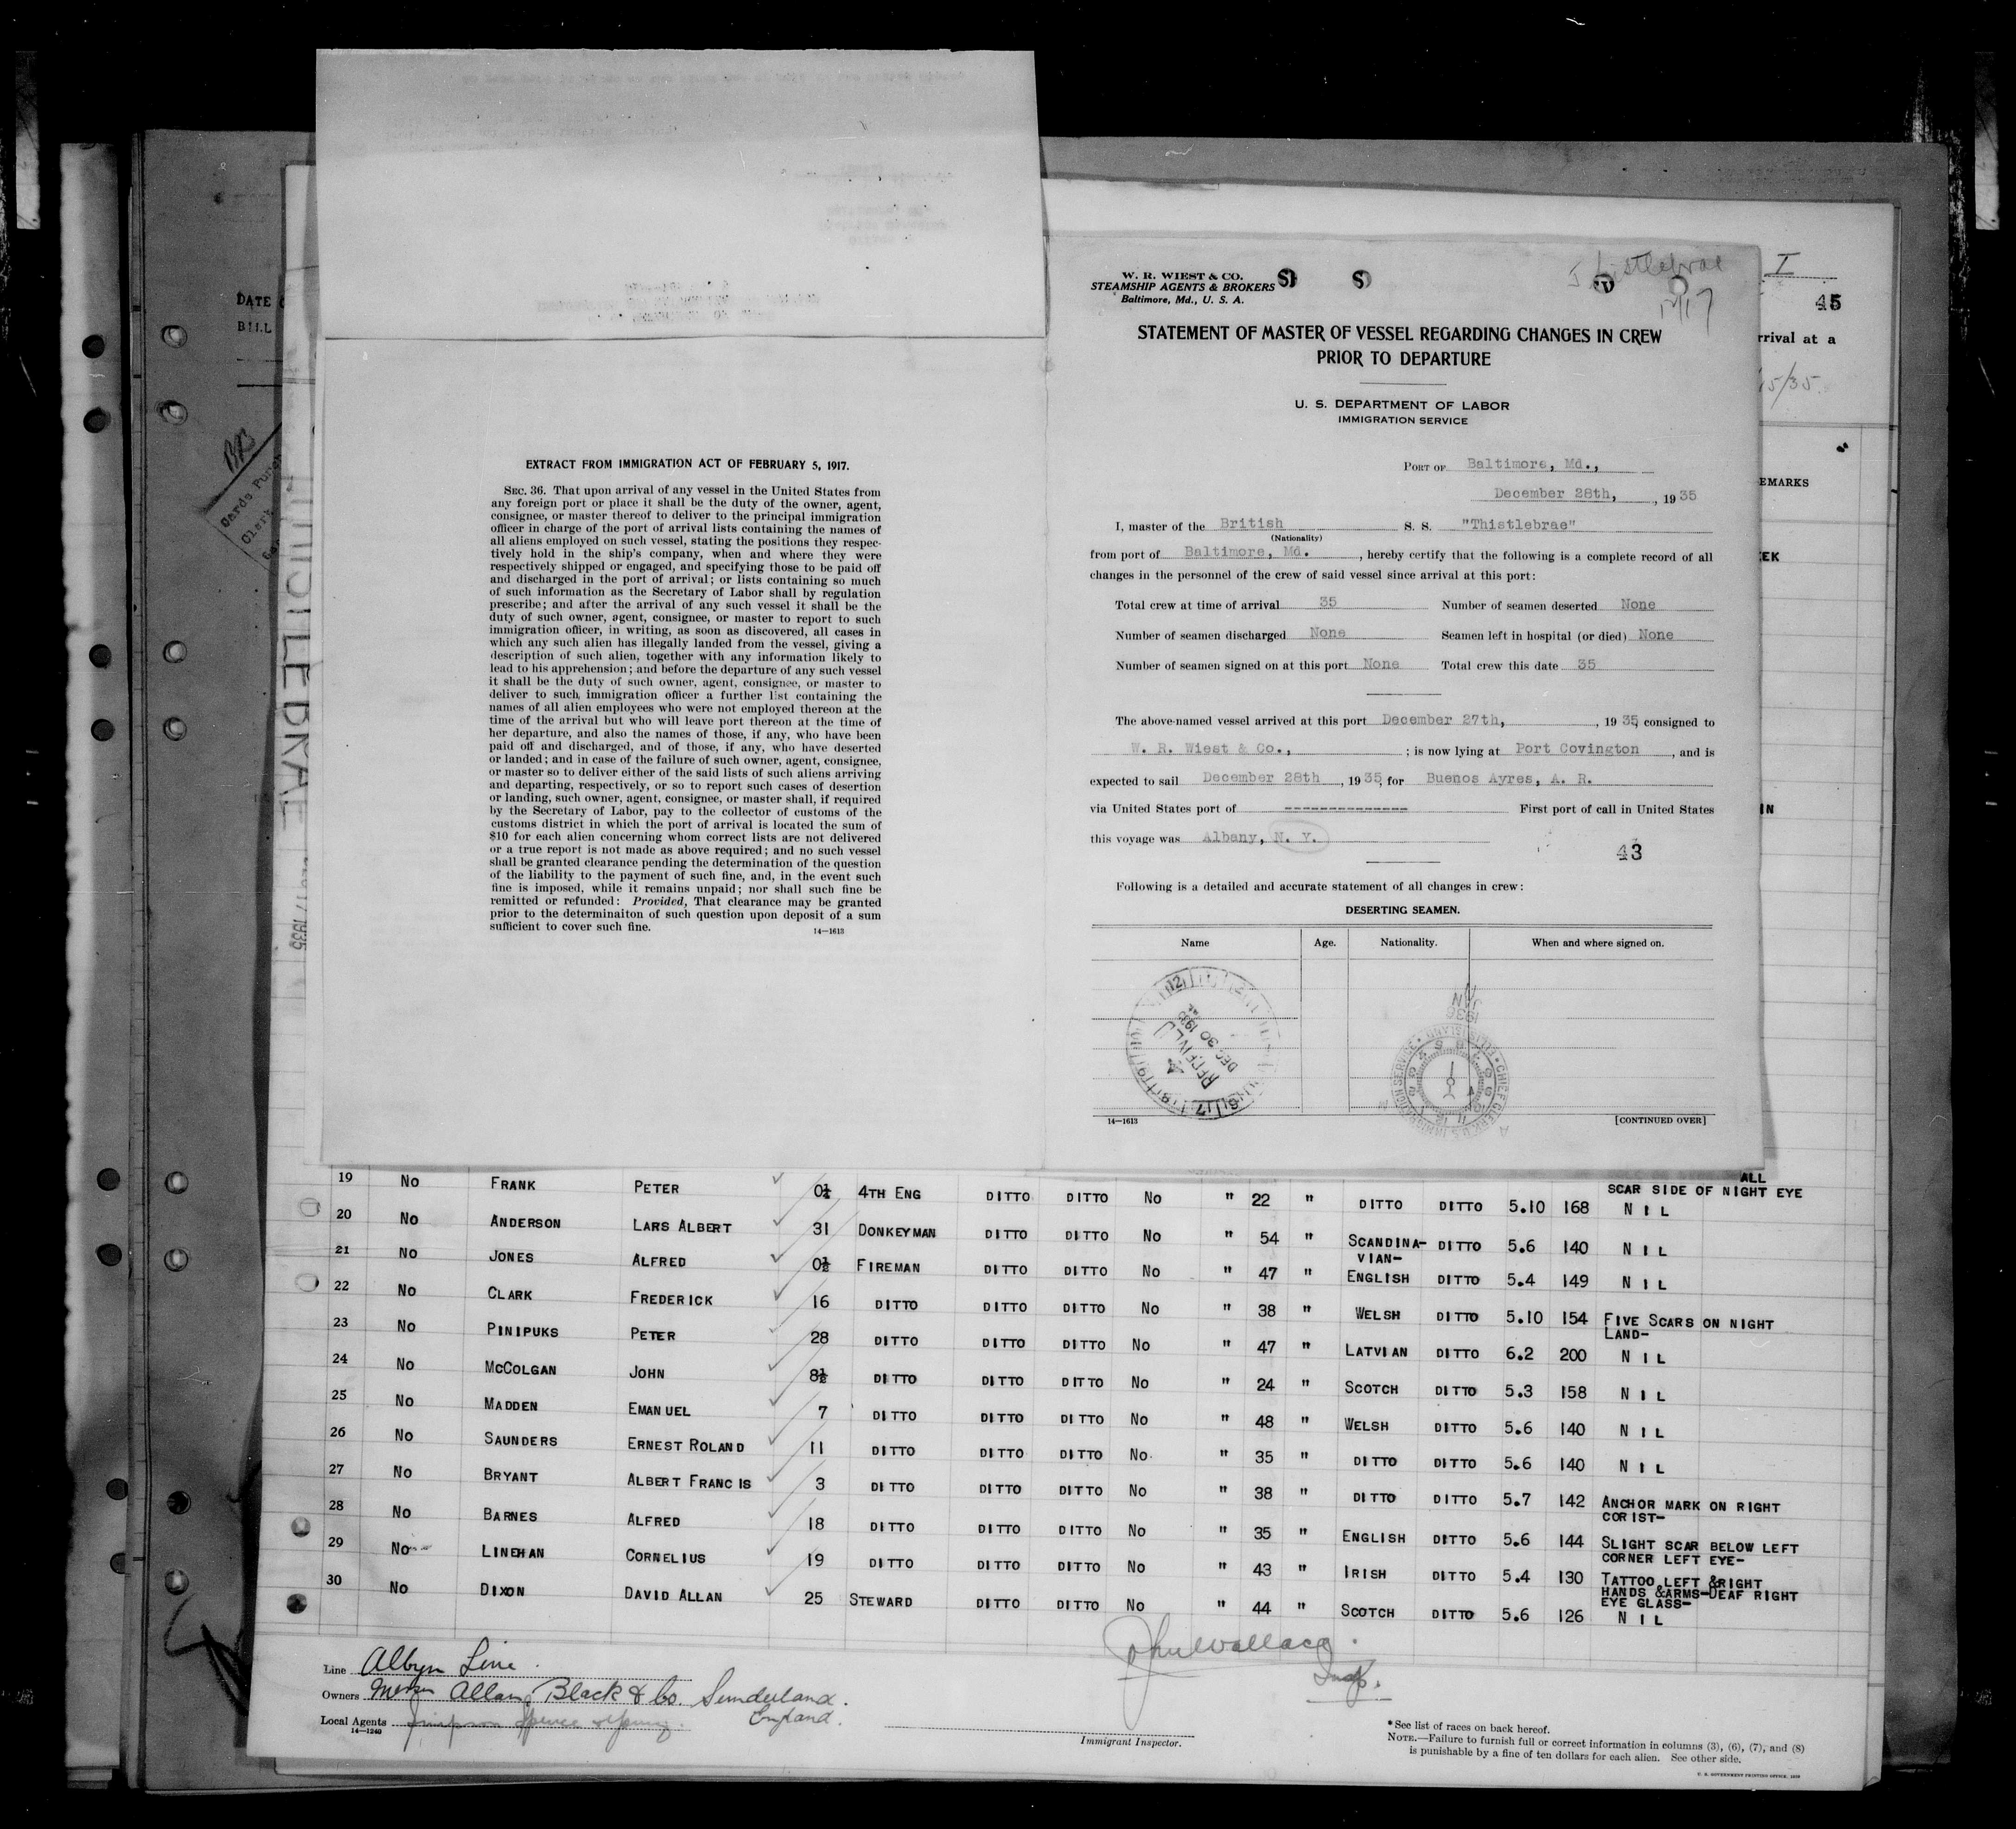 DATE
BILL
BRB
Cards Punch
Clerk
THISTLEBRAE
17 1935
EXTRACT FROM IMMIGRATION ACT OF FEBRUARY 5, 1917.
SEC. 36. That upon arrival of any vessel in the United States from
any foreign port or place it shall be the duty of the owner, agent,
consignee, or master thereof to deliver to the principal immigration
officer in charge of the port of arrival lists containing the names of
all aliens employed on such vessel, stating the positions they respec-
tively hold in the ship's company, when and where they were
respectively shipped or engaged, and specifying those to be paid off
and discharged in the port of arrival; or lists containing so much
of such information as the Secretary of Labor shall by regulation
prescribe; and after the arrival of any such vessel it shall be the
duty of such owner, agent, consignee, or master to report to such
immigration officer, in writing, as soon as discovered, all cases in
which any such alien has illegally landed from the vessel, giving a
description of such alien, together with any information likely to
lead to his apprehension; and before the departure of any such vessel
it shall be the duty of such owner, agent, consignee, or master to
deliver to such immigration officer a further list containing the
names of all alien employees who were not employed thereon at the
time of the arrival but who will leave port thereon at the time of
her departure, and also the names of those, if any, who have been
paid off and discharged, and of those, if any, who have deserted
or landed; and in case of the failure of such owner, agent, consignee,
or master so to deliver either of the said lists of such aliens arriving
and departing, respectively, or so to report such cases of desertion
or landing, such owner, agent, consignee, or master shall, if required
by the Secretary of Labor, pay to the collector of customs of the
customs district in which the port of arrival is located the sum of
$10 for each alien concerning whom correct lists are not delivered
or a true report is not made as above required; and no such vessel
shall be granted clearance pending the determination of the question
of the liability to the payment of such fine, and, in the event such
fine is imposed, while it remains unpaid; nor shall such fine be
remitted or refunded: Provided, That clearance may be granted
prior to the determinaiton of such question upon deposit of a sum
sufficient to cover such fine. 14—1613
W. R. WIEST & CO.
STEAMSHIP AGENTS & BROKERS
Baltimore, Md., U. S. A.
S S
Thistlebrae
12/17
STATEMENT OF MASTER OF VESSEL REGARDING CHANGES IN CREW
PRIOR TO DEPARTURE
U. S. DEPARTMENT OF LABOR
IMMIGRATION SERVICE
PORT OF Baltimore, Md.,
December 28th, , 1935
I, master of the British S. S. "Thistlebrae"
(Nationality)
from port of Baltimore, Md. , hereby certify that the following is a complete record of all
changes in the personnel of the crew of said vessel since arrival at this port:
Total crew at time of arrival 35 Number of seamen deserted None
Number of seamen discharged None Seamen left in hospital (or died) None
Number of seamen signed on at this port None Total crew this date 35
The above-named vessel arrived at this port December 27th, , 1935, consigned to
W. R. Wiest & Co., ; is now lying at Port Covington , and is
expected to sail December 28th , 1935, for Buenos Ayres, A. R.
via United States port of -------------- First port of call in United States
this voyage was Albany, N. Y.
43
Following is a detailed and accurate statement of all changes in crew:
DESERTING SEAMEN.
Name Age. Nationality. When and where signed on.
RECEIVED
DEC 30 1935
JAN
1936
CHIEF CLERK U.S. IMMIGRATION SERVICE · ELLIS ISLAND
14—1613 [CONTINUED OVER]
I
45
rrival at a
15/35
EMARKS
EK
IN
ALL
19 No FRANK PETER 0½ 4TH ENG DITTO DITTO No " 22 " DITTO DITTO 5.10 168 SCAR SIDE OF NIGHT EYE
N I L
20 No ANDERSON LARS ALBERT 31 DONKEYMAN DITTO DITTO No " 54 " SCANDINA-VIAN- DITTO 5.6 140 N I L
21 No JONES ALFRED 0½ FIREMAN DITTO DITTO No " 47 " ENGLISH DITTO 5.4 149 N I L
22 No CLARK FREDERICK 16 DITTO DITTO DITTO No " 38 " WELSH DITTO 5.10 154 FIVE SCARS ON NIGHT
LAND-
23 No PINIPUKS PETER 28 DITTO DITTO DITTO No " 47 " LATVIAN DITTO 6.2 200 N I L
24 No McCOLGAN JOHN 8½ DITTO DITTO DITTO No " 24 " SCOTCH DITTO 5.3 158 N I L
25 No MADDEN EMANUEL 7 DITTO DITTO DITTO No " 48 " WELSH DITTO 5.6 140 N I L
26 No SAUNDERS ERNEST ROLAND 11 DITTO DITTO DITTO No " 35 " DITTO DITTO 5.6 140 N I L
27 No BRYANT ALBERT FRANCIS 3 DITTO DITTO DITTO No " 38 " DITTO DITTO 5.7 142 ANCHOR MARK ON RIGHT
CORIST-
28 No BARNES ALFRED 18 DITTO DITTO DITTO No " 35 " ENGLISH DITTO 5.6 144 SLIGHT SCAR BELOW LEFT
CORNER LEFT EYE-
29 No LINEHAN CORNELIUS 19 DITTO DITTO DITTO No " 43 " IRISH DITTO 5.4 130 TATTOO LEFT &RIGHT
HANDS &ARMS-DEAF RIGHT
EYE GLASS-
30 No DIXON DAVID ALLAN 25 STEWARD DITTO DITTO No " 44 " SCOTCH DITTO 5.6 126 N I L
John Wallace
Insp.
Line Albyn Line
Owners Messrs Allan, Black & Co. Sunderland.
England.
Local Agents Simpson Spence & Young.
14—1240
Immigrant Inspector.
*See list of races on back hereof.
NOTE.—Failure to furnish full or correct information in columns (3), (6), (7), and (8)
is punishable by a fine of ten dollars for each alien. See other side.
U. S. GOVERNMENT PRINTING OFFICE,